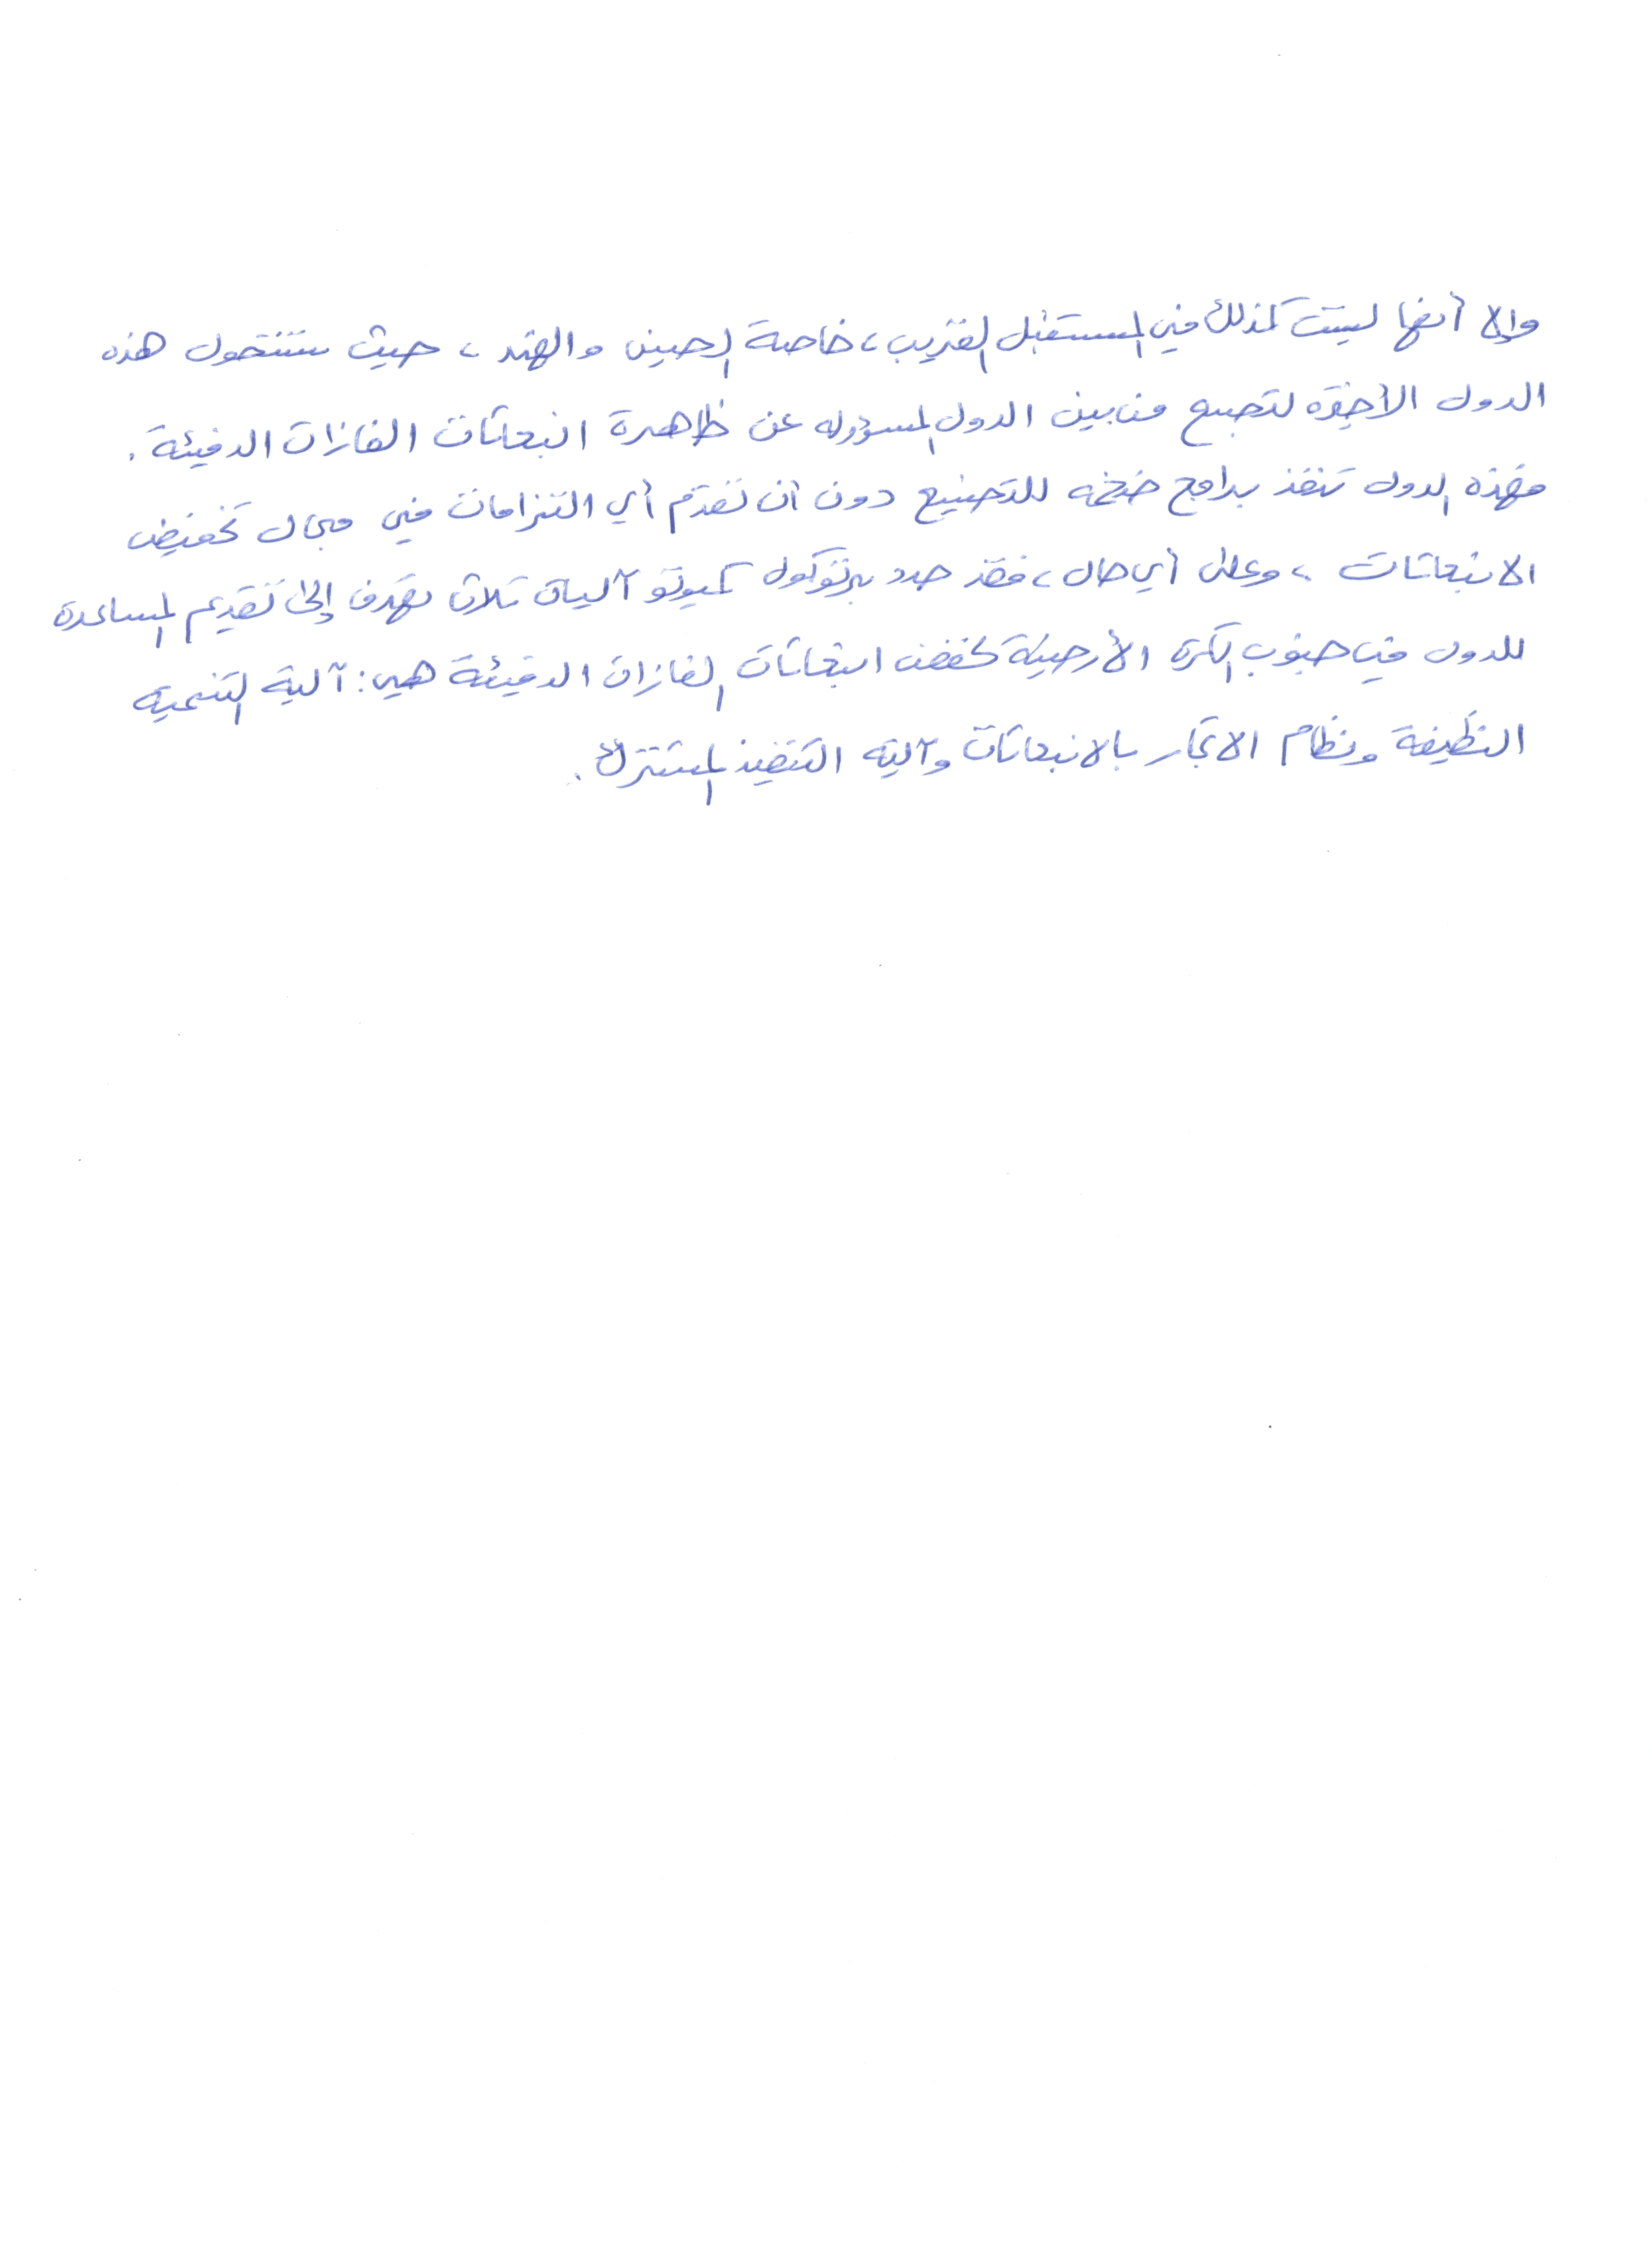 وإلا أنها ليست كذلك في المستقبل القريب، خاصة الصين والهند، حيث ستتحول هذه
الدول الأخيرة لتصبح من بين الدول المسؤوله عن ظاهرة انبعاثات الغازات الدفيئة.
فهذه الدول تنفذ برامج ضخمه للتصنيع دون أن تقدم أي التزامات في مجال تخفيض
الانبعاثات، وعلى أي حال، فقد حدد برتوكول كيوتو آليات ثلاث تهدف إلى تقديم المساعدة
للدول في جنوب الكرة الأرضية لخفض انبعاثات الغازات الدفيئة هي: آلية التنميه
النظيفة ونظام الاتجار بالانبعاثات وآلية التنفيذ المشترك.